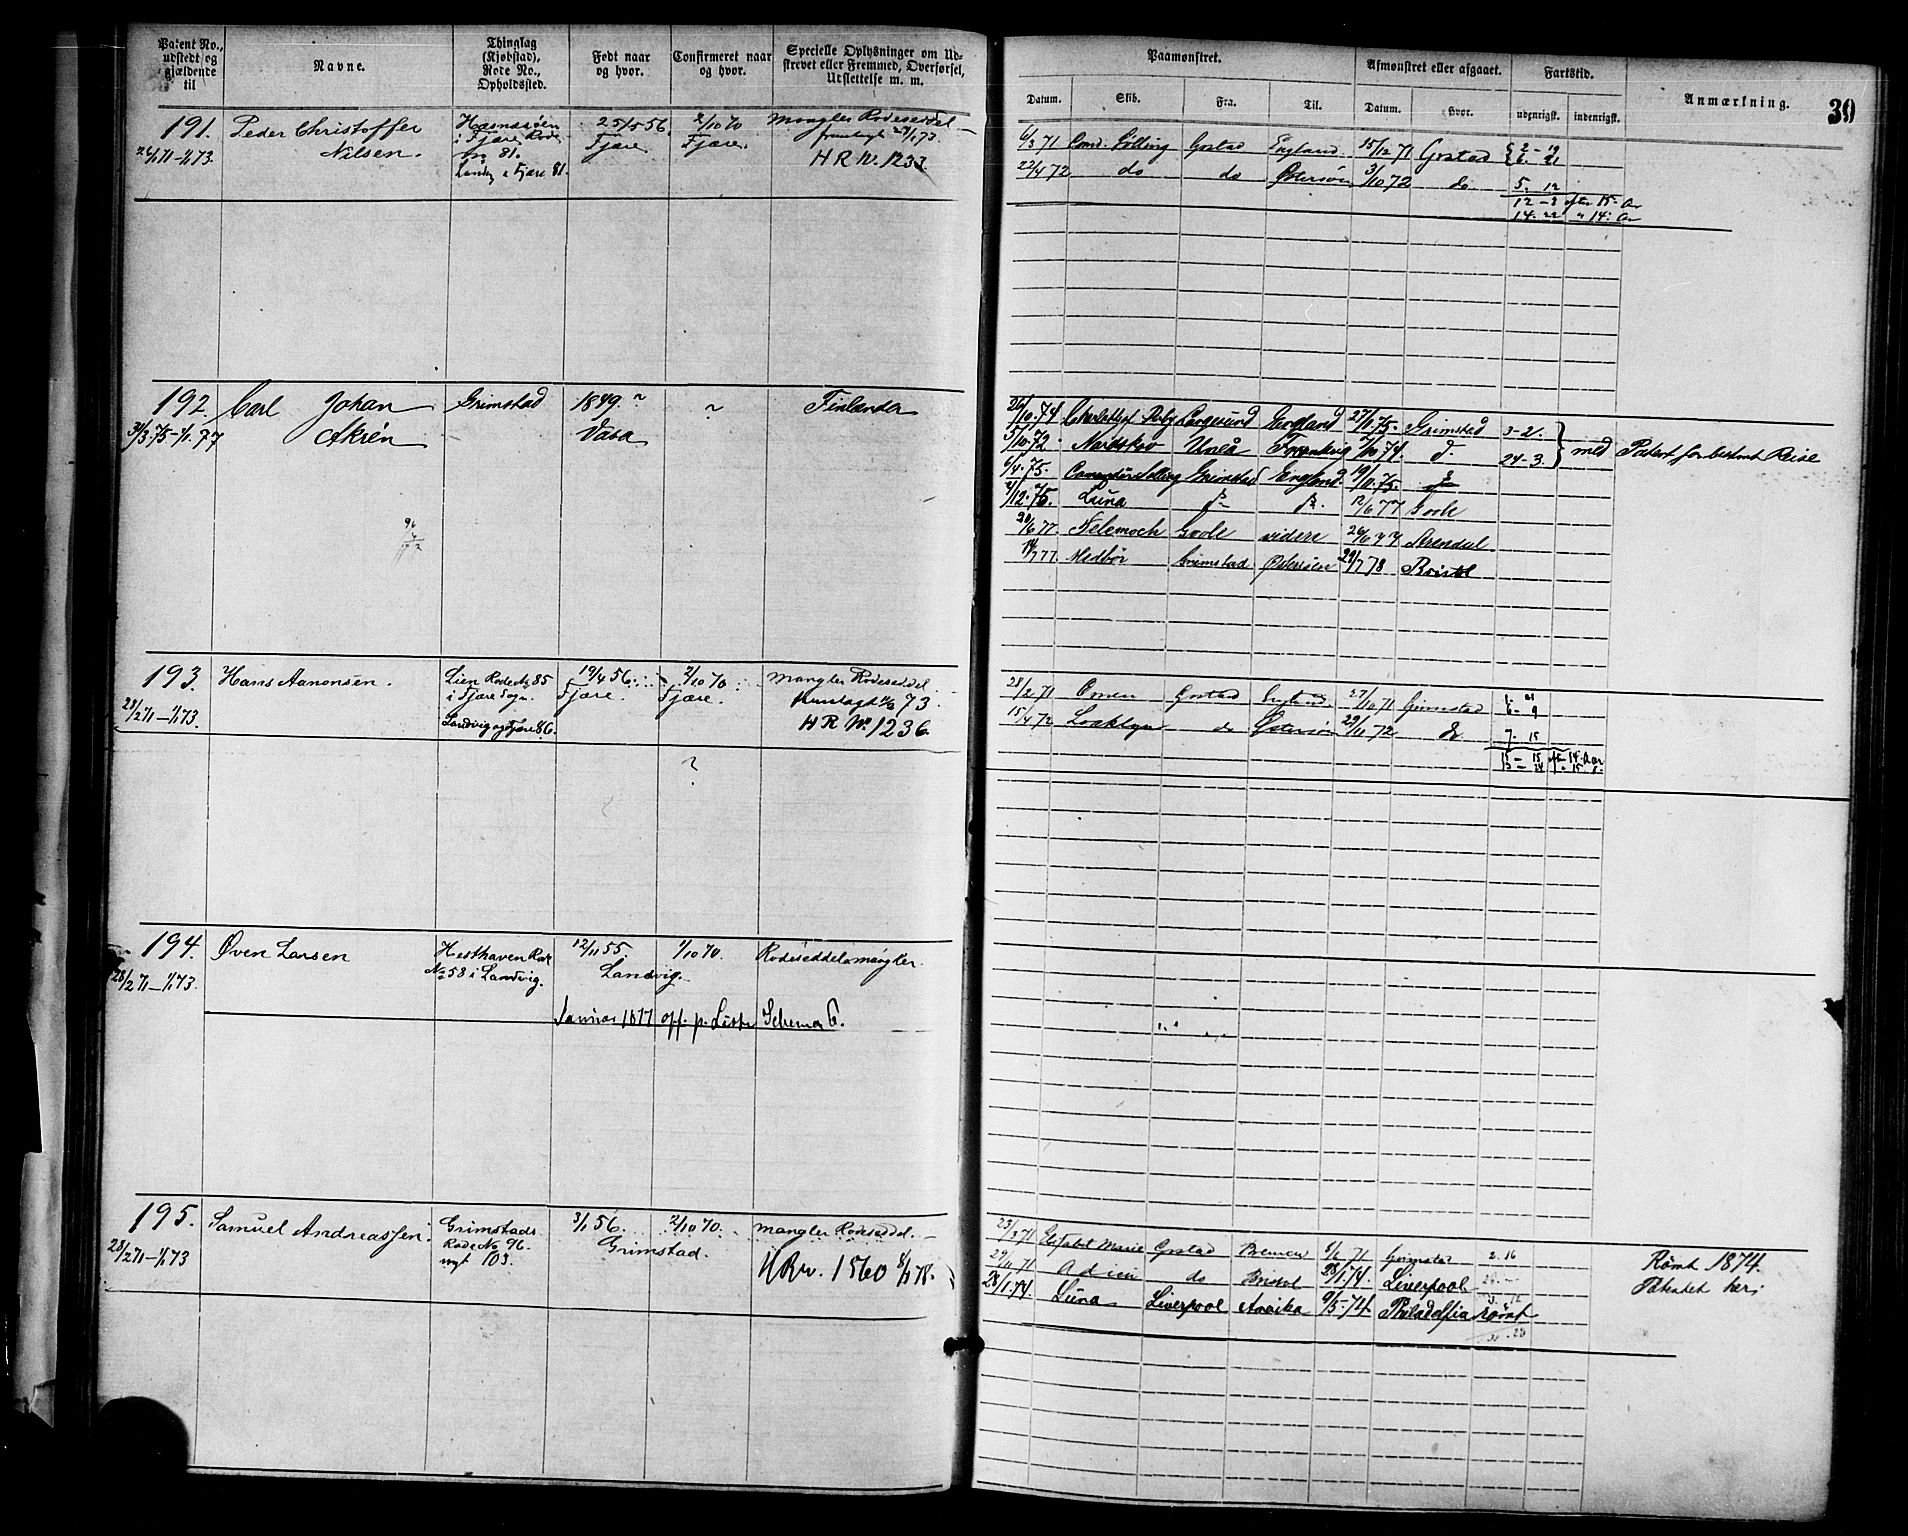 Patent No., udstedt og gjældende til
Navne.
Thinglag (Kjøbstad), Rode No., Opholdssted.
Født naar og hvor.
Confirmeret naar og hvor.
Specielle Oplysninger om Udskrevet eller Fremmed, Overførsel, Udslettelse m. m.
Paamønstret.
Afmønstret eller afgaaet.
Fartstid.
Anmærkning.
39
Datum.
Skib.
Fra.
Til.
Datum.
Hvor.
udenrigsk.
indenrigsk.
191.
Peder Christoffer
Nilsen.
Hasnæsøen
i Fjære Rode
No 81.
Landv. & Fjære 81.
25/5 56
Fjære
2/10 70
Fjære.
Mangler Rodeseddel
HR No. 1233.
6/3 71 Cond. Tolling Grstad England 15/12 71 Grstad
22/4 72 do do Østersøen 3/10 72 do 5. 12
12 - 3 efter 15. Ar
14. 22 " 14. Ar
192.
31/3.75-1/1.77
Carl Johan
Akrén
Grimstad
1849. ?
Vasa
?
Finlænder
26/10.74 Langesund England 27/1.75. Grimstad 3-2.
5/10.72. Umeå 74. d. 24-3.
med Patent for bestemt Reise
6/4.75. Grimstad England 19/10.75.
4/12.75. Luna 12/6 77 Goole
20/6 77. Nelemoch Goole videre Arendal
14/7 77. Medbør Grimstad Østersøen 29/7 78 Bristol
193.
28/2 71-1/1 73.
Hans Aanonsen.
Lien Rode No 85
i Fjære Sogn.
Landvig og Fjære 86.
19/4 56.
Fjære.
2/10 70
Fjære.
Mangler Rodeseddel.
HR No 1236.
?
28/2 71 Omen Grstad England. 27/10 71 Grimstad
15/4 72 do Østersøen 29/11 72 do 7. 15
194.
28/2 71-1/1 73.
Øven Larsen
Hesthaven Rode
No 58 i Landvig.
12/11 55.
1/10 70.
Landvig.
Rodeseddel mangler.
Januar 1877 opf. p. Liste Schema 6.
195.
28/2 71-1/1 73
Samuel Andreassen.
Grimstads
Rode No 96.
nyt 103.
3/1 56.
2/10 70.
Grimstad.
Mangler Rodeseddel.
HR No. 1560 8/1 78.
23/3 71 Elisabet Marie Grstad Bremen 8/6 71 Grimstad 2. 16
29/11 71 Adien do Bristol 28/1.74. Liverpool
28/1.74. Luna Liverpool Amrika 9/5-74 Philadelfia rømt
Rømt 1874.
Patentet her